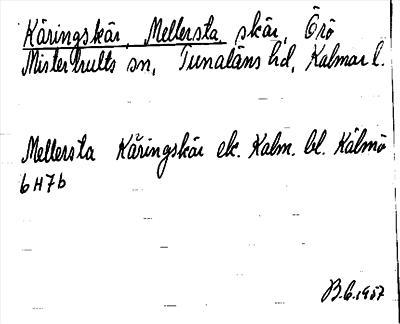 Käringskär, Mellersta, skär, Örö
Misterhults sn, Tunaläns hd, Kalmar l.
Mellersta Käringskär ek. Kalm. bl. Kälmö
6H7b
B.G. 1957